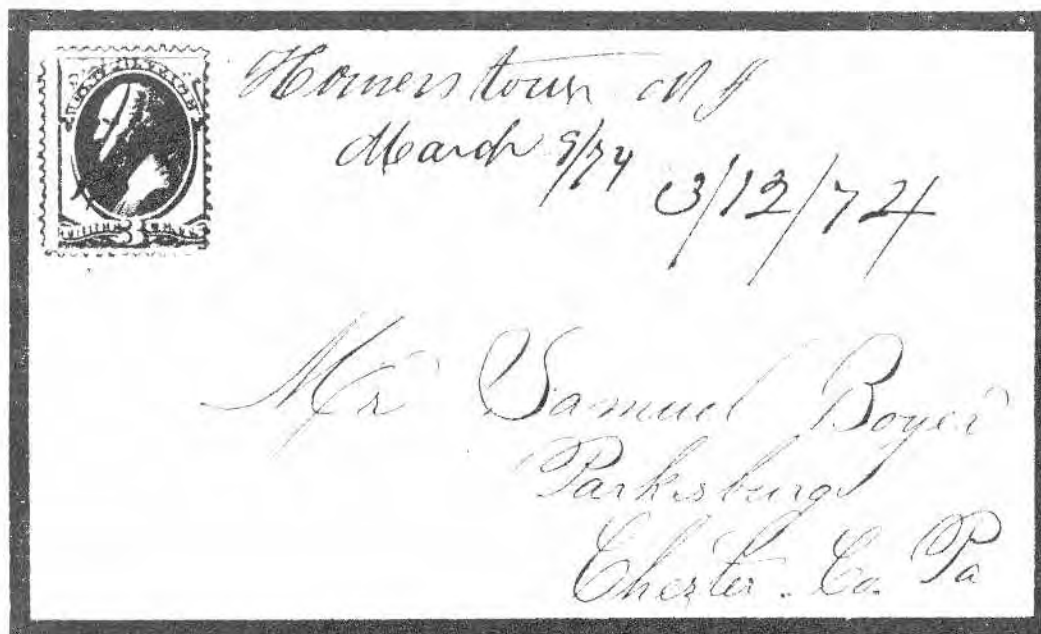 Hornerstown N J
March 9/74 3/12/74
3
Mr Samuel Boyer
Parksburg
Chester. Co. Pa